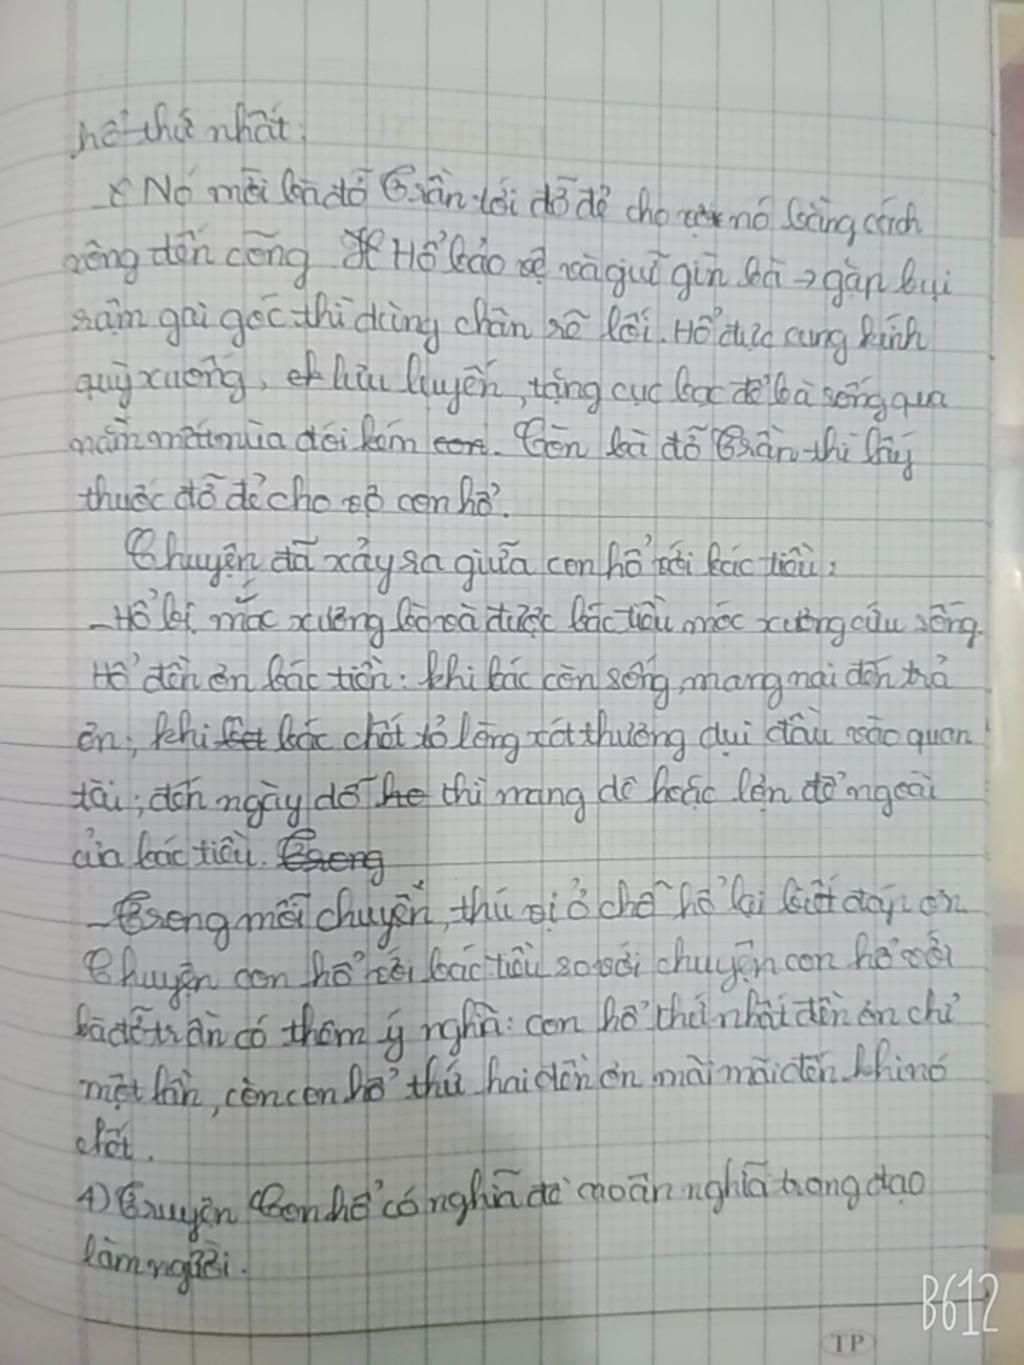 hổ thứ nhất:
+ Nó mời bà đỡ Trần tới đỡ đẻ cho nó bằng cách
xông đến cõng Hổ bảo vệ và giữ gìn bà → gặp bụi
rậm gai góc thì dùng chân rẽ lối. Hổ đực cung kính
quỳ xuống, lưu luyến, tặng cục bạc để bà sống qua
năm mất mùa đói kém. Còn bà đỡ Trần thì lấy
thuốc đỡ đẻ cho vợ con hổ.
Chuyện đã xảy ra giữa con hổ với bác tiều:
- Hổ bị mắc xương bò và được bác tiều móc xương cứu sống.
Hổ đền ơn bác tiều: khi bác còn sống, mang nai đến trả
ơn; khi bác chết tỏ lòng xót thương dụi đầu vào quan
tài; đến ngày dỗ thì mang dê hoặc lợn để ngoài
của bác tiều.
- Trong mỗi chuyện, thú vị ở chỗ hổ lại biết đáp ơn
Chuyện con hổ với bác tiều so với chuyện con hổ với
bà đỡ trần có thêm ý nghĩa: con hổ thứ nhất đền ơn chỉ
một lần, còn con hổ thứ hai đền ơn mãi mãi đến khi nó
chết.
4) Truyện Con hổ có nghĩa đề cao ân nghĩa trong đạo
làm người.
B612
TP